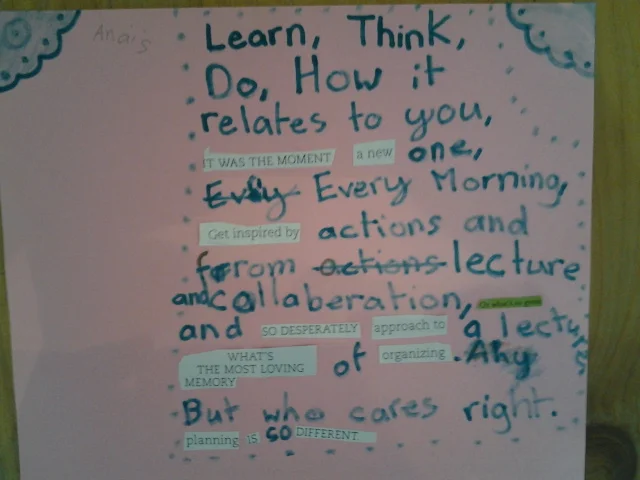 Anais
Learn, Think,
Do, How it
relates to you,
IT WAS THE MOMENT a new one,
Every Morning,
Get inspired by actions and
from actions lecture
and collaberation, Or what's so great
and SO DESPERATELY approach to a lecture
WHAT'S
THE MOST LOVING
MEMORY of organizing. Any
But who cares right.
planning IS SO DIFFERENT